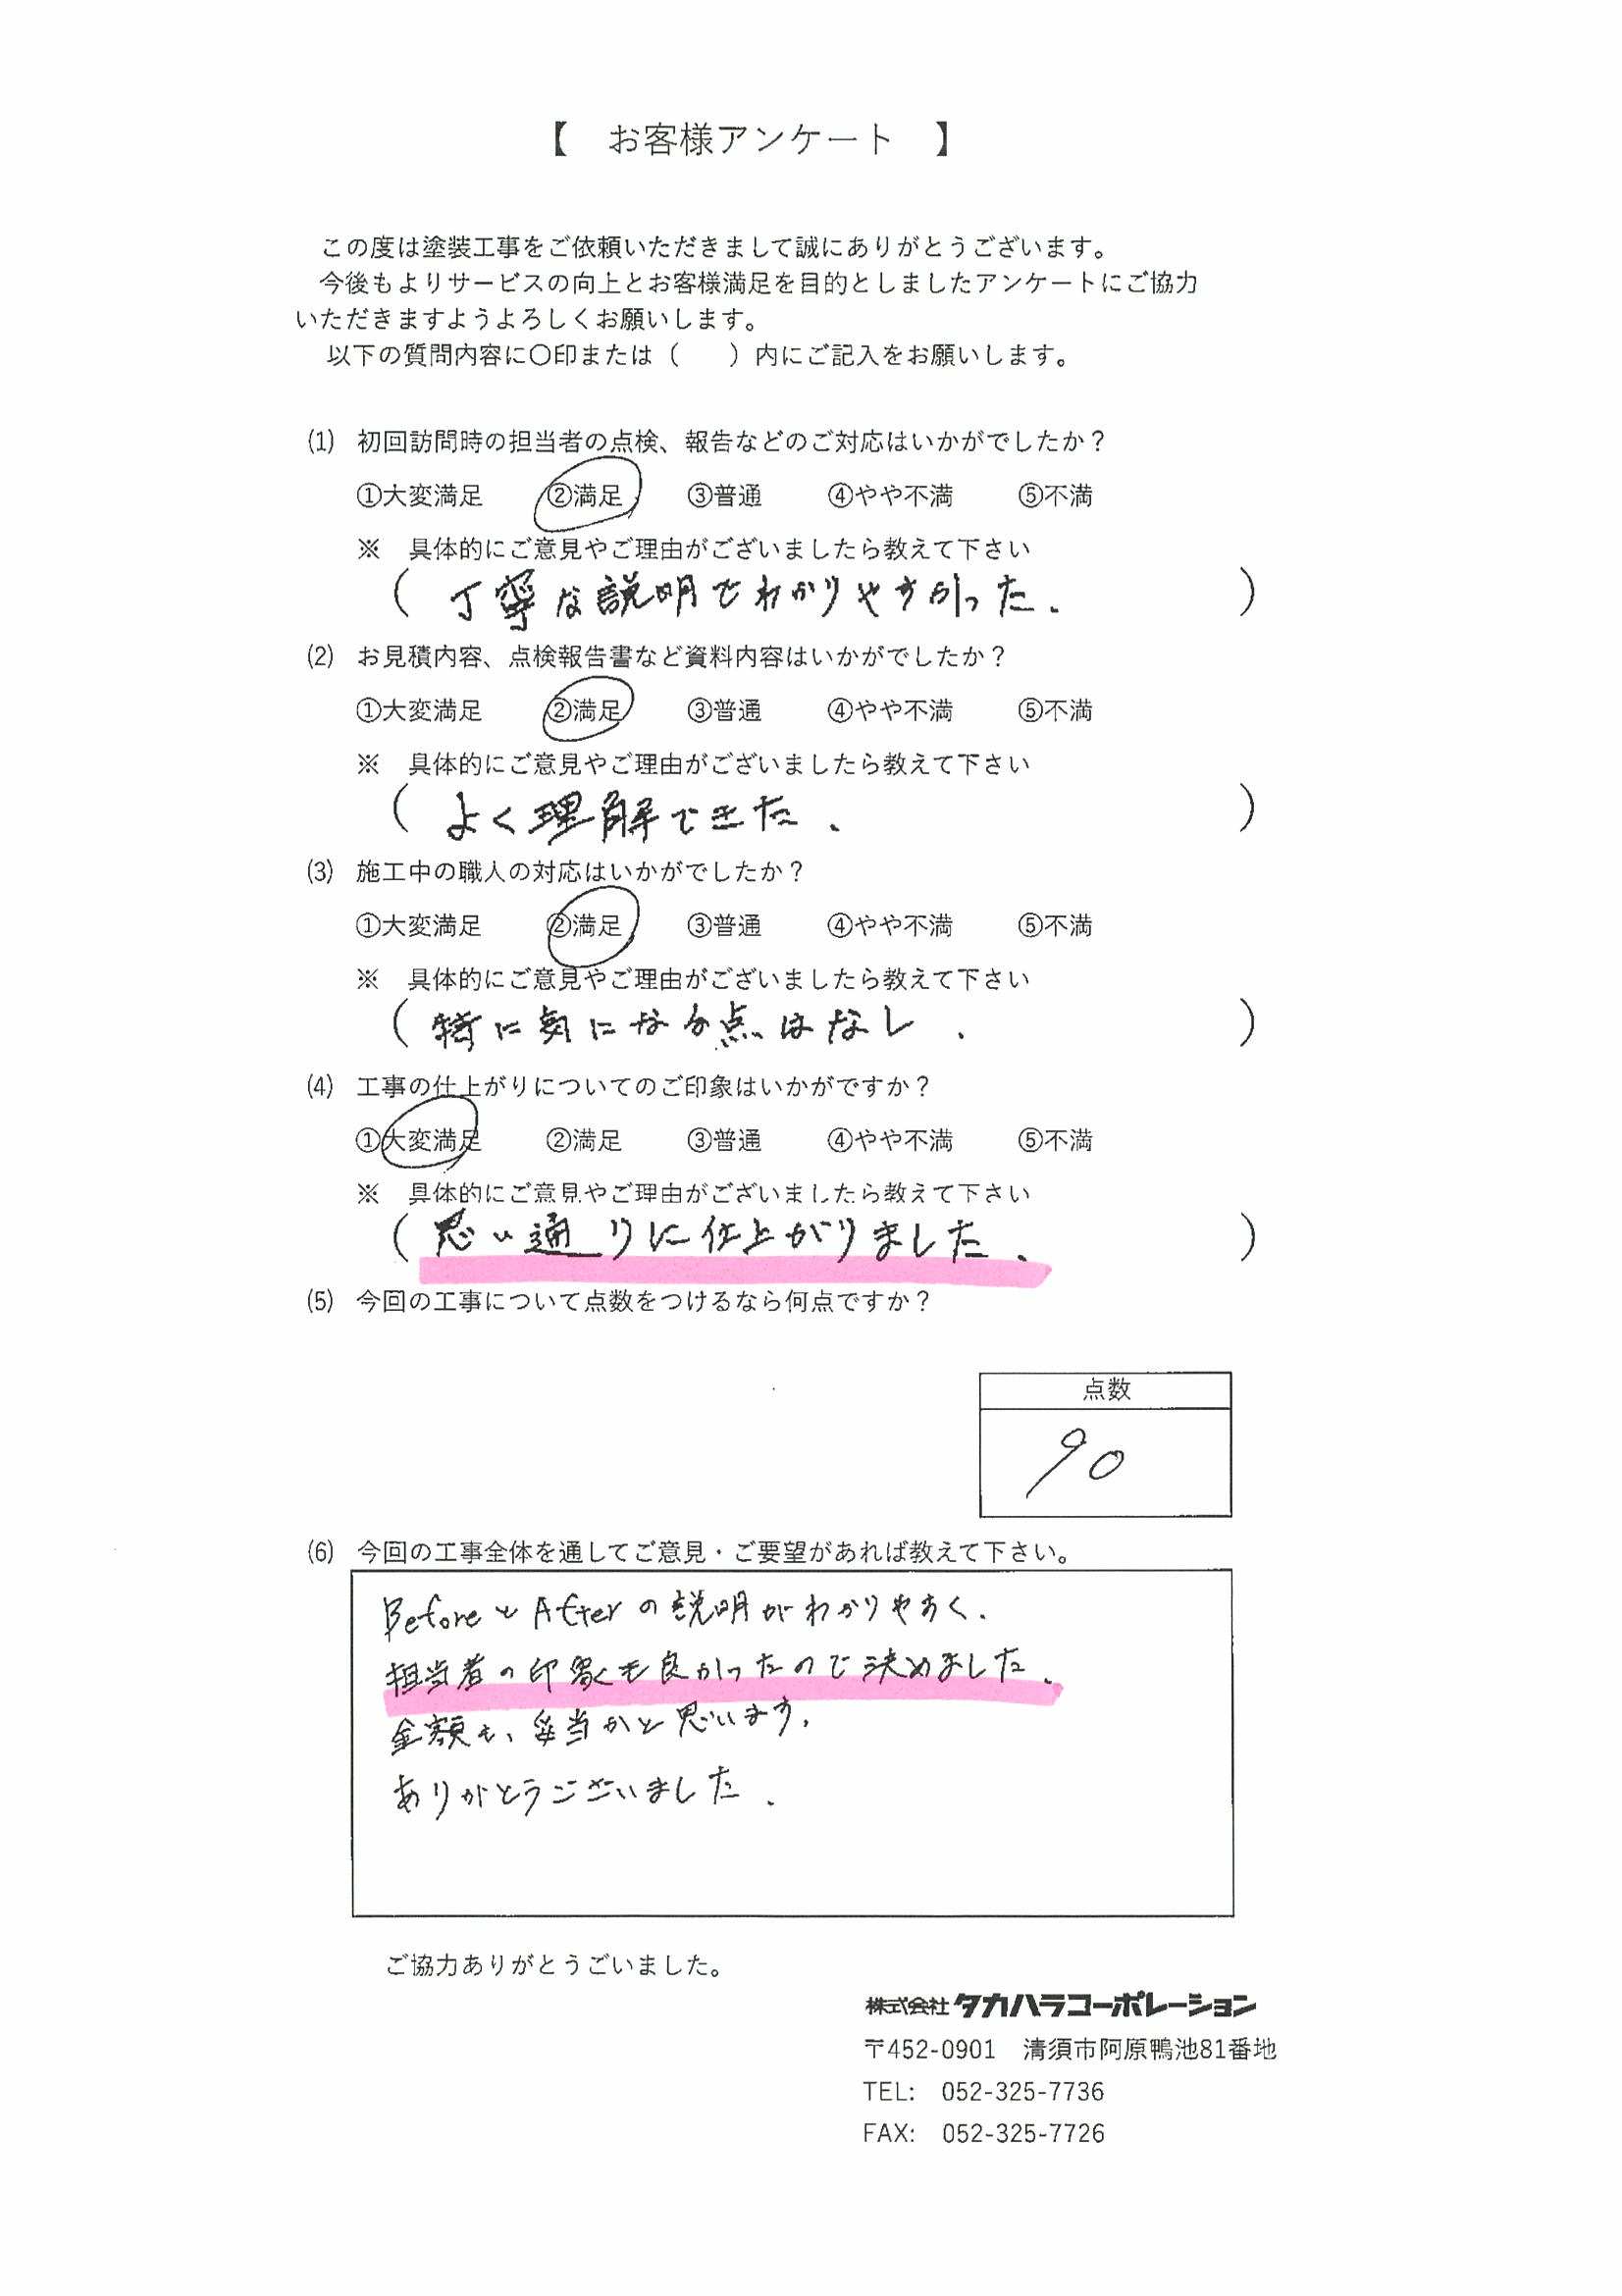 【　お客様アンケート　】
この度は塗装工事をご依頼いただきまして誠にありがとうございます。
今後もよりサービスの向上とお客様満足を目的としましたアンケートにご協力
いただきますようよろしくお願いします。
以下の質問内容に〇印または（　　）内にご記入をお願いします。
(1)　初回訪問時の担当者の点検、報告などのご対応はいかがでしたか？
①大変満足　②満足　③普通　④やや不満　⑤不満
※　具体的にご意見やご理由がございましたら教えて下さい
（丁寧な説明でわかりやすかった.）
(2)　お見積内容、点検報告書など資料内容はいかがでしたか？
①大変満足　②満足　③普通　④やや不満　⑤不満
※　具体的にご意見やご理由がございましたら教えて下さい
（よく理解できた.）
(3)　施工中の職人の対応はいかがでしたか？
①大変満足　②満足　③普通　④やや不満　⑤不満
※　具体的にご意見やご理由がございましたら教えて下さい
（特に気になる点はなし.）
(4)　工事の仕上がりについてのご印象はいかがですか？
①大変満足　②満足　③普通　④やや不満　⑤不満
※　具体的にご意見やご理由がございましたら教えて下さい
（思い通りに仕上がりました.）
(5)　今回の工事について点数をつけるなら何点ですか？
点数
90
(6)　今回の工事全体を通してご意見・ご要望があれば教えて下さい。
BeforeとAfterの説明がわかりやすく.
担当者の印象も良かったので決めました.
金額も、妥当かと思います.
ありがとうございました.
ご協力ありがとうごいました。
株式会社 タカハラコーポレーション
〒452-0901　清須市阿原鴨池81番地
TEL:　052-325-7736
FAX:　052-325-7726